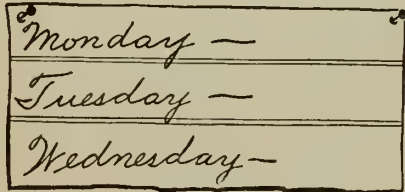 Monday —
Tuesday —
Wednesday —